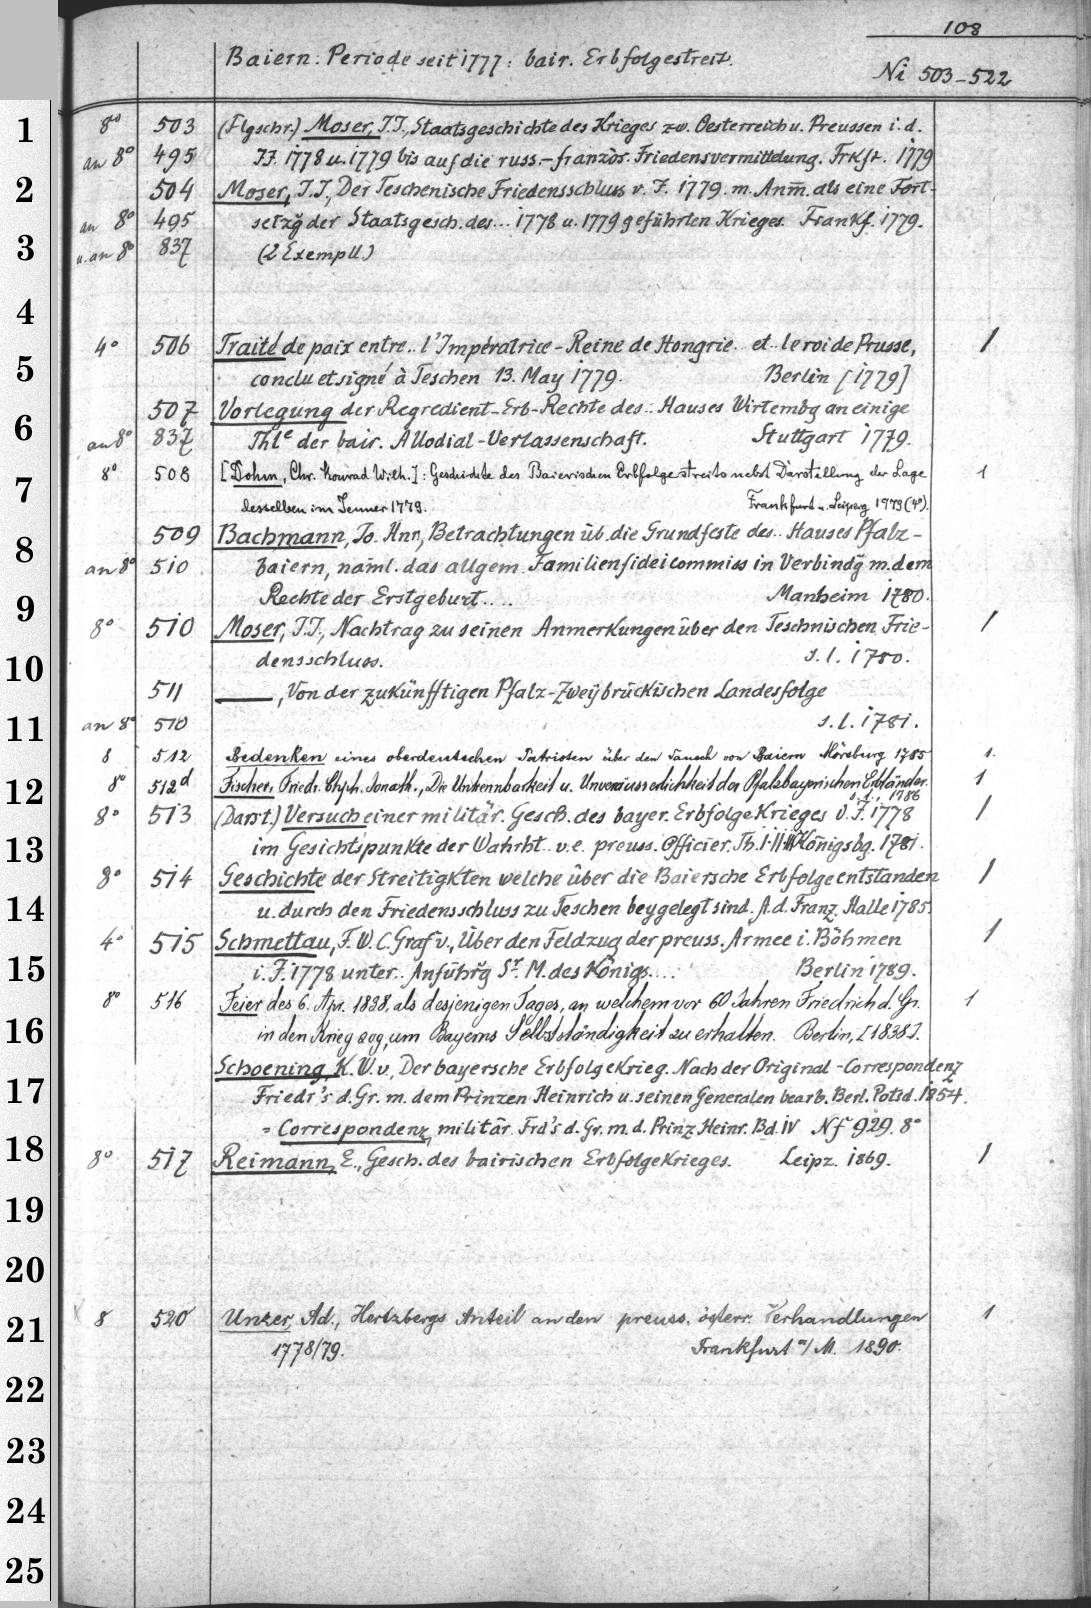 108
Baiern: Periode seit 1777: bair. Erbfolgestreit.
Ni 503–522
1
8° 503 (Flgschr.) Moser, J.J., Staatsgeschichte des Krieges zw. Oesterreich u. Preussen i. d.
an 8° 495 JJ. 1778 u. 1779 bis auf die russ.–französ. Friedensvermittelung. Frkft. 1779
2
504 Moser, J.J., Der Teschenische Friedensschluss v. J. 1779. m. Anm̄. als eine Fort-
an 8° 495 setzg̃ der Staatsgesch. des... 1778 u. 1779 geführten Krieges. Frankf. 1779.
3
u. an 8° 837 (2 Exempll.)
4
4° 506 Traité de paix entre.. l'Impératrice-Reine de Hongrie.. et.. le roi de Prusse, 1
5
conclu et signé à Teschen 13. May 1779. Berlin [1779]
507 Vorlegung der Regredient-Erb-Rechte des.. Hauses Wirtembg an einige
6
an 8° 837 Thle der bair. Allodial-Verlassenschaft. Stuttgart 1779.
8° 508 [Dohm, Chr. Konrad Wilh.]: Geschichte des Baierischen Erbfolgestreits nebst Darstellung der Lage 1
7
desselben im Jenner 1779. Frankfurt u. Leipzig 1979 (4°).
509 Bachmann, Jo. Hnr., Betrachtungen üb. die Grundfeste des.. Hauses Pfalz-
8
an 8° 510 baiern, näml. das allgem. Familienfideicommiss in Verbindg̃ m. dem
9
Rechte der Erstgeburt.... Manheim 1780.
8° 510 Moser, J.J., Nachtrag zu seinen Anmerkungen über den Teschnischen Frie- 1
10
densschluss. s. l. 1780.
511 ——, Von der zukünfftigen Pfalz-Zweybrückischen Landesfolge
11
an 8° 510 s. l. 1781.
8 512 Bedenken eines oberdeutschen Patrioten über den Tausch von Baiern Mörsburg 1785 1.
12
8° 512d Fischer, Friedr. Chph. Jonath., Die Untrennbarkeit u. Unveräusserlichkeit der Pfalzbayrischen Erbländer. 1
s. l., 1786
8° 513 (Darst.) Versuch einer militär. Gesch. des bayer. Erbfolgekrieges v. J. 1778 1
13
im Gesichtspunkte der Wahrht.. v. e. preuss. Officier. Th. I. II. III Königsbg. 1781.
8° 514 Geschichte der Streitigkten welche über die Baiersche Erbfolge entstanden 1
14
u. durch den Friedensschluss zu Teschen beygelegt sind. A. d. Franz. Halle 1785.
4° 515 Schmettau, F. W. C. Graf v., Über den Feldzug der preuss. Armee i. Böhmen 1
15
i. J. 1778 unter.. Anführg̃ Sr. M. des Königs.... Berlin 1789.
8° 516 Feier des 6. Apr. 1838, als desjenigen Tages, an welchem vor 60 Jahren Friedrich d. Gr. 1
16
in den Krieg zog, um Bayerns Selbstständigkeit zu erhalten. Berlin, [1838].
Schoening, K. W. v., Der bayersche Erbfolgekrieg. Nach der Original-Correspondenz
17
Friedr's d. Gr. m. dem Prinzen Heinrich u. seinen Generalen bearb. Berl. Potsd. 1854.
= Correspondenz, militär. Frd's d. Gr. m. d. Prinz Heinr. Bd. IV Nf 929. 8°
18
8° 517 Reimann, E., Gesch. des bairischen Erbfolgekrieges. Leipz. 1869. 1
19
20
21
8 520 Unzer, Ad., Hertzbergs Anteil an den preuss. österr. Verhandlungen 1
1778/79. Frankfurt a/M. 1890.
22
23
24
25